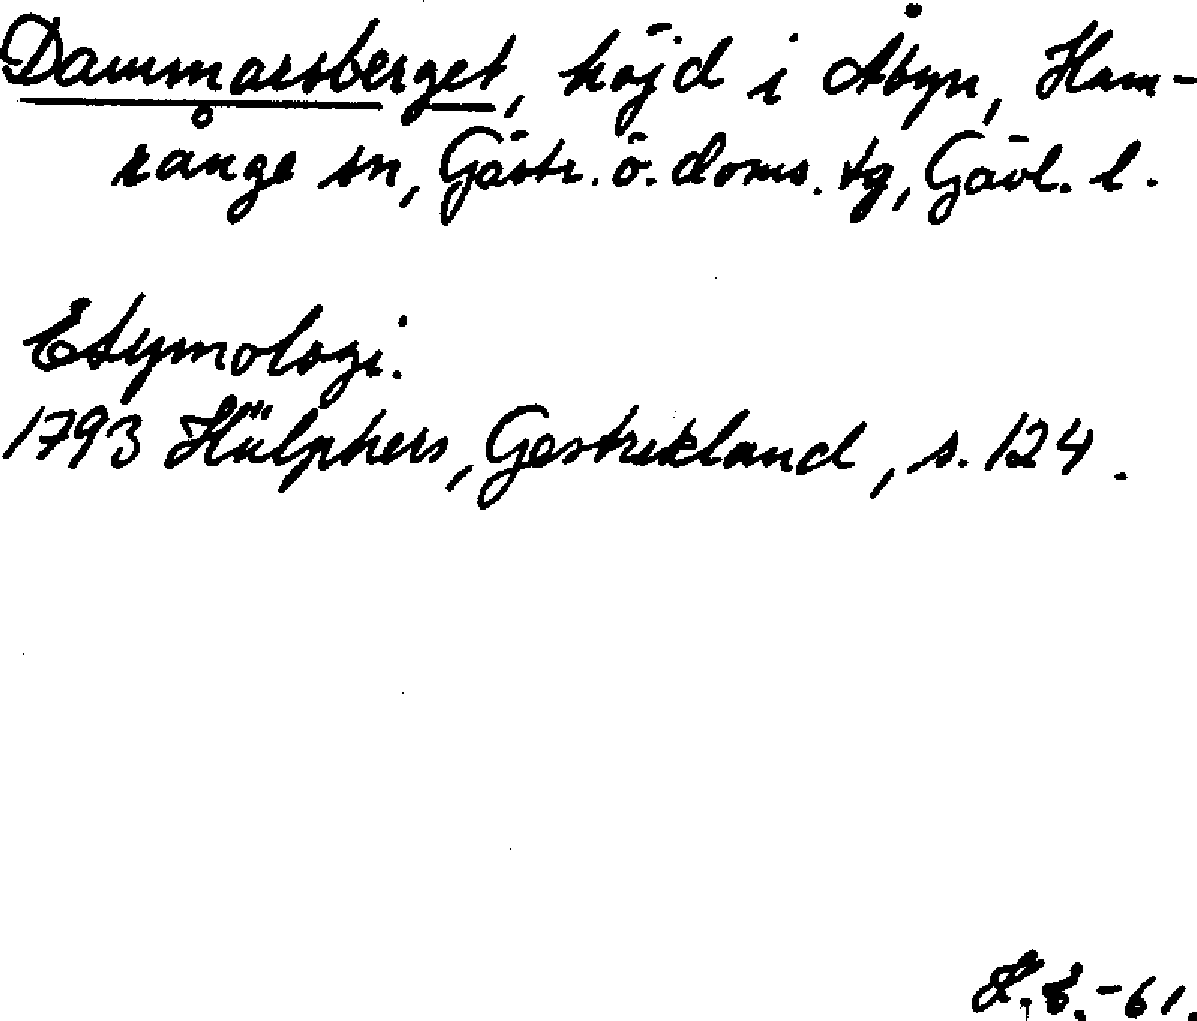 Dammarsberget, höjd i Åbyn, Ham-
rånge sn, Gästr. ö. doms. tg, Gävl. l.
Etymologi.
1793 Hülphers, Gestrikland, s. 124.
-61.